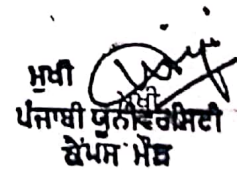 ਮੁਖੀ
ਮੁਖੀ
ਪੰਜਾਬੀ ਯੂਨੀਵਰਸਿਟੀ
ਕੈਂਪਸ ਮੌੜ